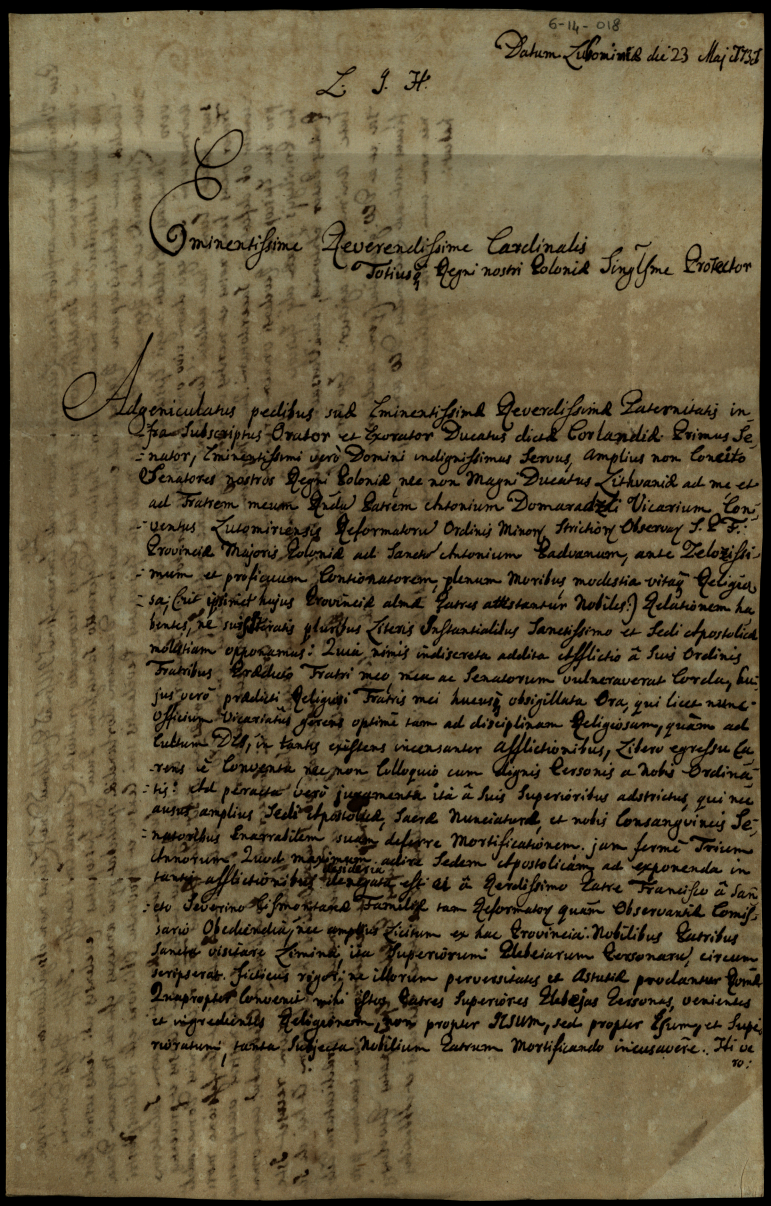 6-14-018
Datum Lutomiriæ die 23 Maj 1731
L. J. H.
Eminentissime Reverendissime Cardinalis
Totiusq Regni nostri Poloniæ Singlsme Protector
Adgeniculatus pedibus suæ Eminentissimæ Reverdissimæ Paternitatis in
-fra Subscriptus Orator et Exorator Ducatus dictæ Corlandiæ Primus Se-
-nator, Eminentissimi verò Domini indignissimus Servus, Amplius non
Senatores nostros Regni Poloniæ, nec non Magni Ducatus Lithvaniæ ad me et
ad Fratrem meum Rndu Patrem Antonium Domaradzki Vicarium Con-
-ventus Lutomiriensis Reformatoru Ordinis Minoru Strictioru Observan S. P. F.
Provinciæ Majoris Poloniæ ad Sanctu Antonium Paduanum, ante Zelozisti-
mum et proficuum Contionatorem, plenum Moribus modestia vitaq Religio
sa, (:ut ipsimet hujus Provinciæ almæ Patres attestantur Nobiles:) Relationem ha
bentes, ne pluribus Literis Instantialibus Sanctissimo et Sedi Apostolicæ
molestiam opponamus: Quia nimis indiscreta addita Afflictio â Suis Ordinis
Fratribus Prædicto Fratri meo, mea ac Senatorum vulneraverat Corda, hu
jus verò prædicti Religiosi Fratris mei hucusq obsigillata Ora, qui licet nunc
Officium Vicariatus gerens optimè tam ad disciplinam Religiosam, quàm ad
Cultum DEI, in tantis existens incessanter Afflictionibus, Libero egressu Ca
rens è Conventu nec non Colloquio cum dignis Personis a Nobis Ordina-
tis: Ad peracta verò juramenta ità â Suis Superioribus adstrictus, qui nec
ausus amplius Sedi Apostolicæ, Sacræ Nunciaturæ, et nobis Consangvineis Se-
-natoribus Enarrabilem suam deferre Mortificationem. jam fermè Trium
Annorum. Quod maximum adire Sedem Apostolicam ad exponenda in
tantis afflictionibus desideria denegata est et â Rerdissimo Patre Francisco â San
cto Severino Familiæ tam Reformatoru quàm Observantiæ Comis-
sario Obedientia, nec amplius Licitum ex hac Provincia Nobilibus Patribus
Sancta visitare Limina, ita Superiorum Plebeiarum Personaru, circum
scripserat rigor, ne illorum perversitates et Astutiæ prodantur Romæ
Quapropter Convenit mihi Patres Superiores Plebejas Personas, venientes
et ingredientes Religionem, non propter JESUM, sed propter Esum, et Supe
rioratum, tanta Subjecta Nobilium Patrum Mortificando incusavère. Hi ve
ro: